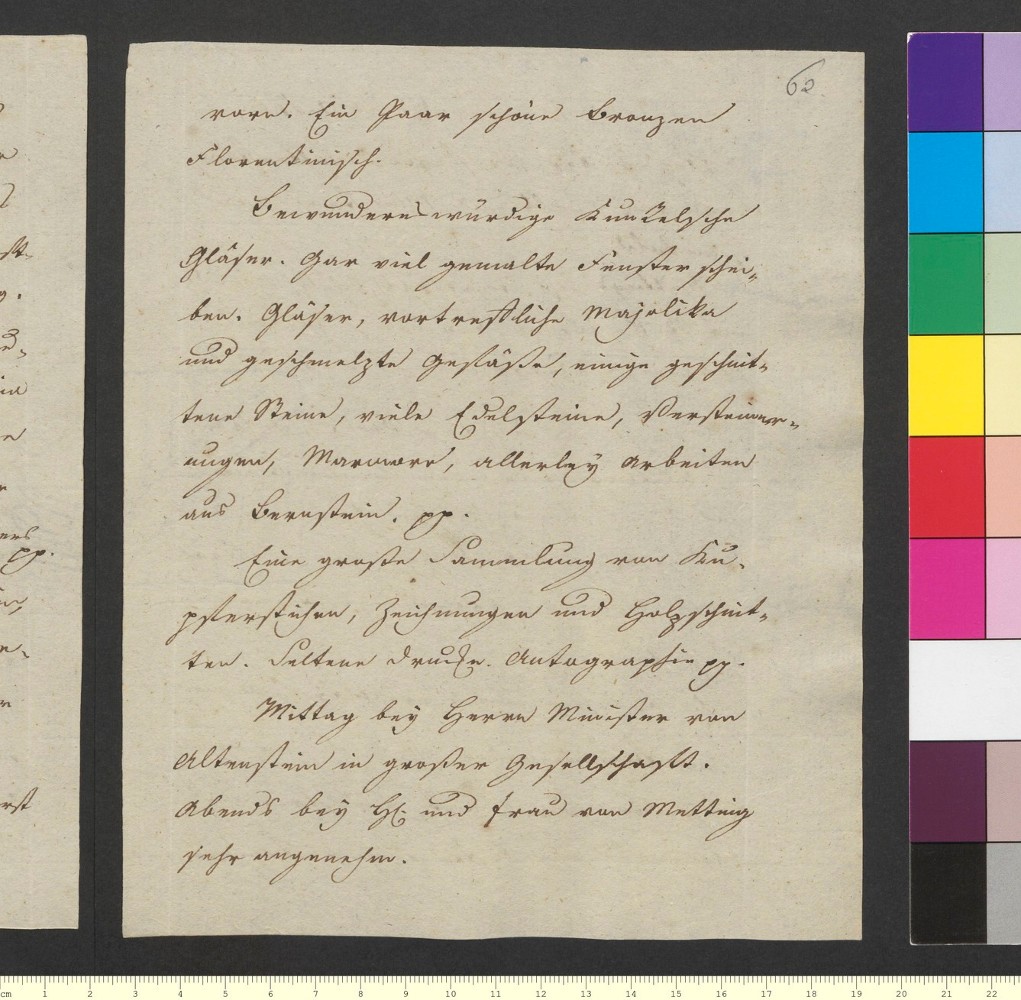 62
vorn. Ein Paar schöne Bronzen
Florentinisch.
Bewundernswürdige Kunkelsche
Gläser. Gar viel gemalte Fensterschei⸗
ben. Gläser, vortreffliche Majolika
und geschmelzte Gefäße, einige geschnit⸗
tene Steine, viele Edelsteine, Versteiner⸗
ungen, Marmore, allerley Arbeiten
aus Bernstein. pp.
Eine große Sammlung von Ku⸗
pferstichen, Zeichnungen und Holzschnit⸗
ten. Seltene Drucke. Autographie pp.
Mittag bey Herrn Minister von
Altenstein in großer Gesellschaft.
Abends bey H. und Frau von Metting
sehr angenehm.
st.
g.
ers
pp.
rst